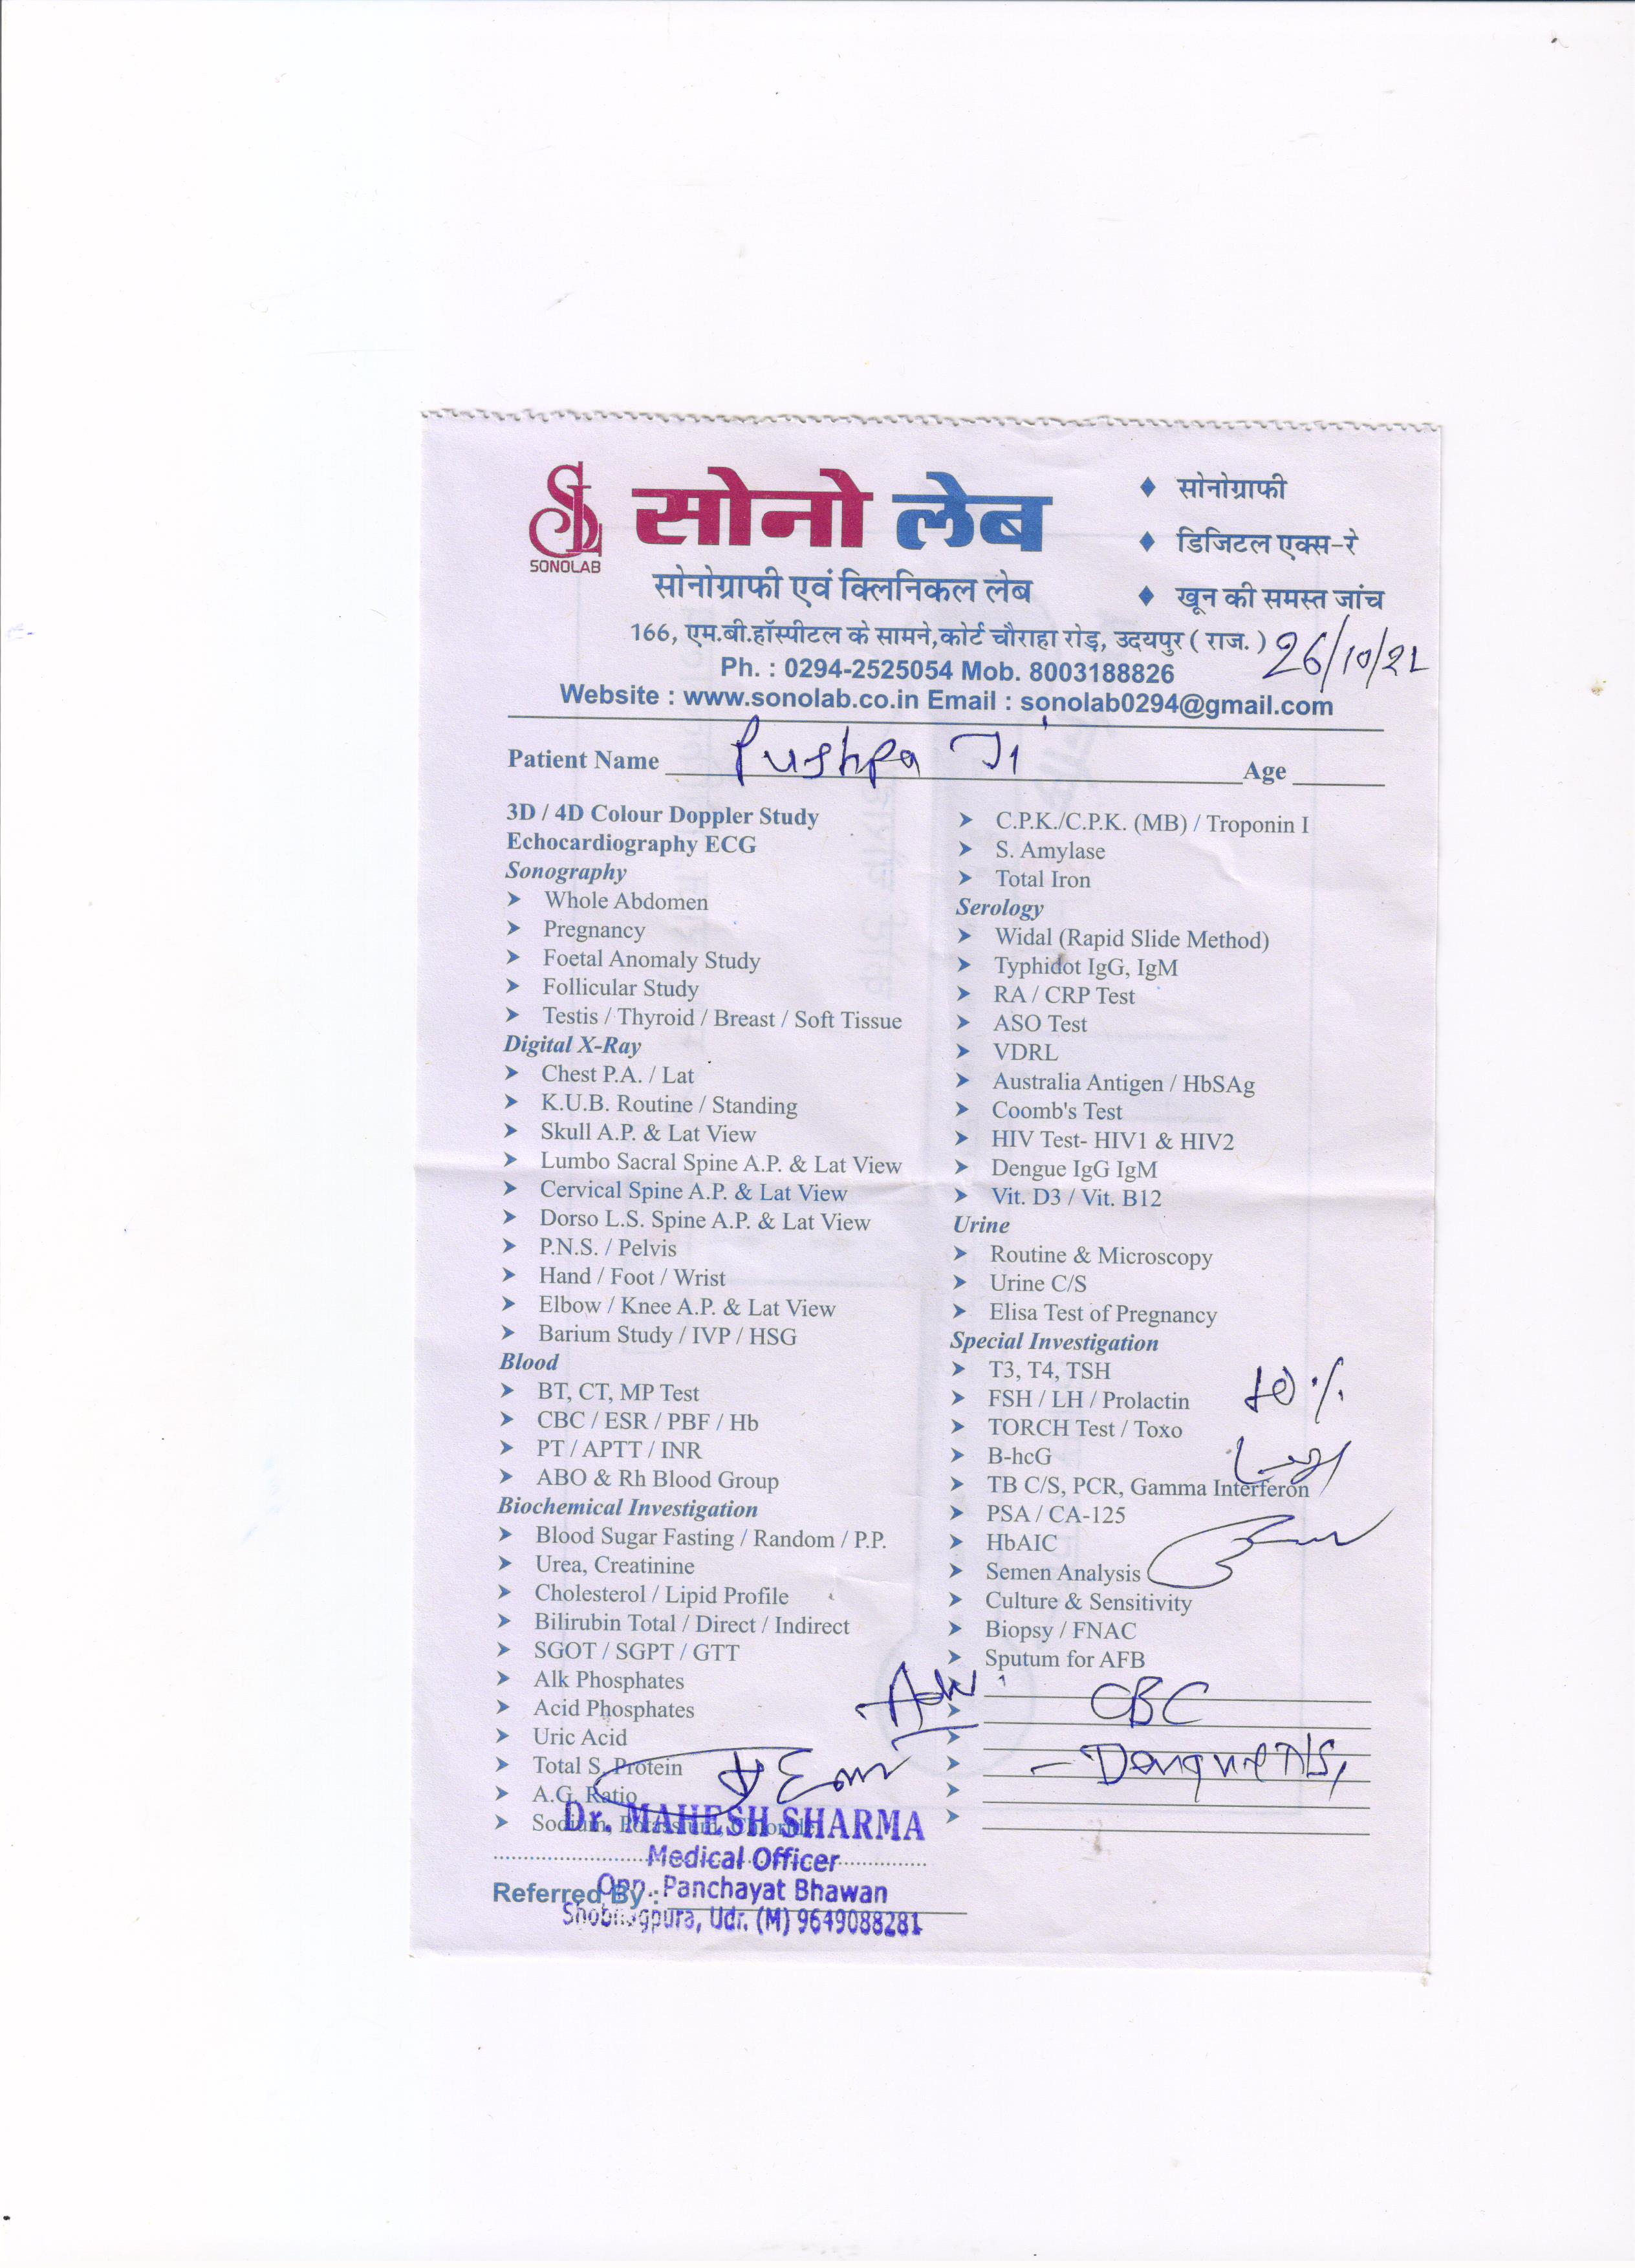 SONOLAB
सोनो लेब
सोनोग्राफी एवं क्लिनिकल लेब
♦ सोनोग्राफी
♦ डिजिटल एक्स-रे
♦ खून की समस्त जांच
166, एम.बी.हॉस्पीटल के सामने,कोर्ट चौराहा रोड़, उदयपुर ( राज. )
26/10/21
Ph. : 0294-2525054 Mob. 8003188826
Website : www.sonolab.co.in Email : sonolab0294@gmail.com
Patient Name Pushpa Ji Age
3D / 4D Colour Doppler Study
Echocardiography ECG
Sonography
➤ Whole Abdomen
➤ Pregnancy
➤ Foetal Anomaly Study
➤ Follicular Study
➤ Testis / Thyroid / Breast / Soft Tissue
Digital X-Ray
➤ Chest P.A. / Lat
➤ K.U.B. Routine / Standing
➤ Skull A.P. & Lat View
➤ Lumbo Sacral Spine A.P. & Lat View
➤ Cervical Spine A.P. & Lat View
➤ Dorso L.S. Spine A.P. & Lat View
➤ P.N.S. / Pelvis
➤ Hand / Foot / Wrist
➤ Elbow / Knee A.P. & Lat View
➤ Barium Study / IVP / HSG
Blood
➤ BT, CT, MP Test
➤ CBC / ESR / PBF / Hb
➤ PT / APTT / INR
➤ ABO & Rh Blood Group
Biochemical Investigation
➤ Blood Sugar Fasting / Random / P.P.
➤ Urea, Creatinine
➤ Cholesterol / Lipid Profile
➤ Bilirubin Total / Direct / Indirect
➤ SGOT / SGPT / GTT
➤ Alk Phosphates
➤ Acid Phosphates
➤ Uric Acid
➤ Total S. Protein
➤ A.G. Ratio
➤ Sodium, Potassium, Chloride
Dr. MAHESH SHARMA
Medical Officer
Opp. Panchayat Bhawan
Shobhagpura, Udr. (M) 9649088281
Referred By :
➤ C.P.K./C.P.K. (MB) / Troponin I
➤ S. Amylase
➤ Total Iron
Serology
➤ Widal (Rapid Slide Method)
➤ Typhidot IgG, IgM
➤ RA / CRP Test
➤ ASO Test
➤ VDRL
➤ Australia Antigen / HbSAg
➤ Coomb's Test
➤ HIV Test- HIV1 & HIV2
➤ Dengue IgG IgM
➤ Vit. D3 / Vit. B12
Urine
➤ Routine & Microscopy
➤ Urine C/S
➤ Elisa Test of Pregnancy
Special Investigation
➤ T3, T4, TSH
➤ FSH / LH / Prolactin
➤ TORCH Test / Toxo
➤ B-hcG
➤ TB C/S, PCR, Gamma Interferon
➤ PSA / CA-125
➤ HbAIC
➤ Semen Analysis
➤ Culture & Sensitivity
➤ Biopsy / FNAC
➤ Sputum for AFB
Adv.
CBC
- Dengue NS1